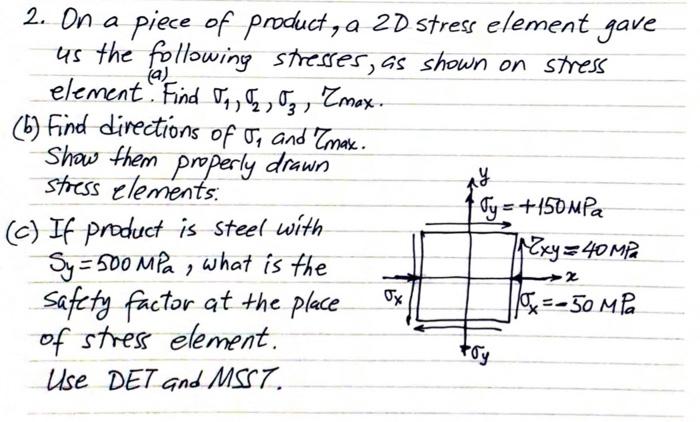 2. On a piece of product, a 2D stress element gave
us the following stresses, as shown on stress
element. (a) Find σ₁, σ₂, σ₃, τmax.
(b) Find directions of σ₁ and τmax.
Show them properly drawn
stress elements.
(c) If product is steel with
Sy = 500 MPa, what is the
safety factor at the place
of stress element.
Use DET and MSST.
y
σy = +150 MPa
τxy = 40 MPa
x
σx
σx = -50 MPa
σy